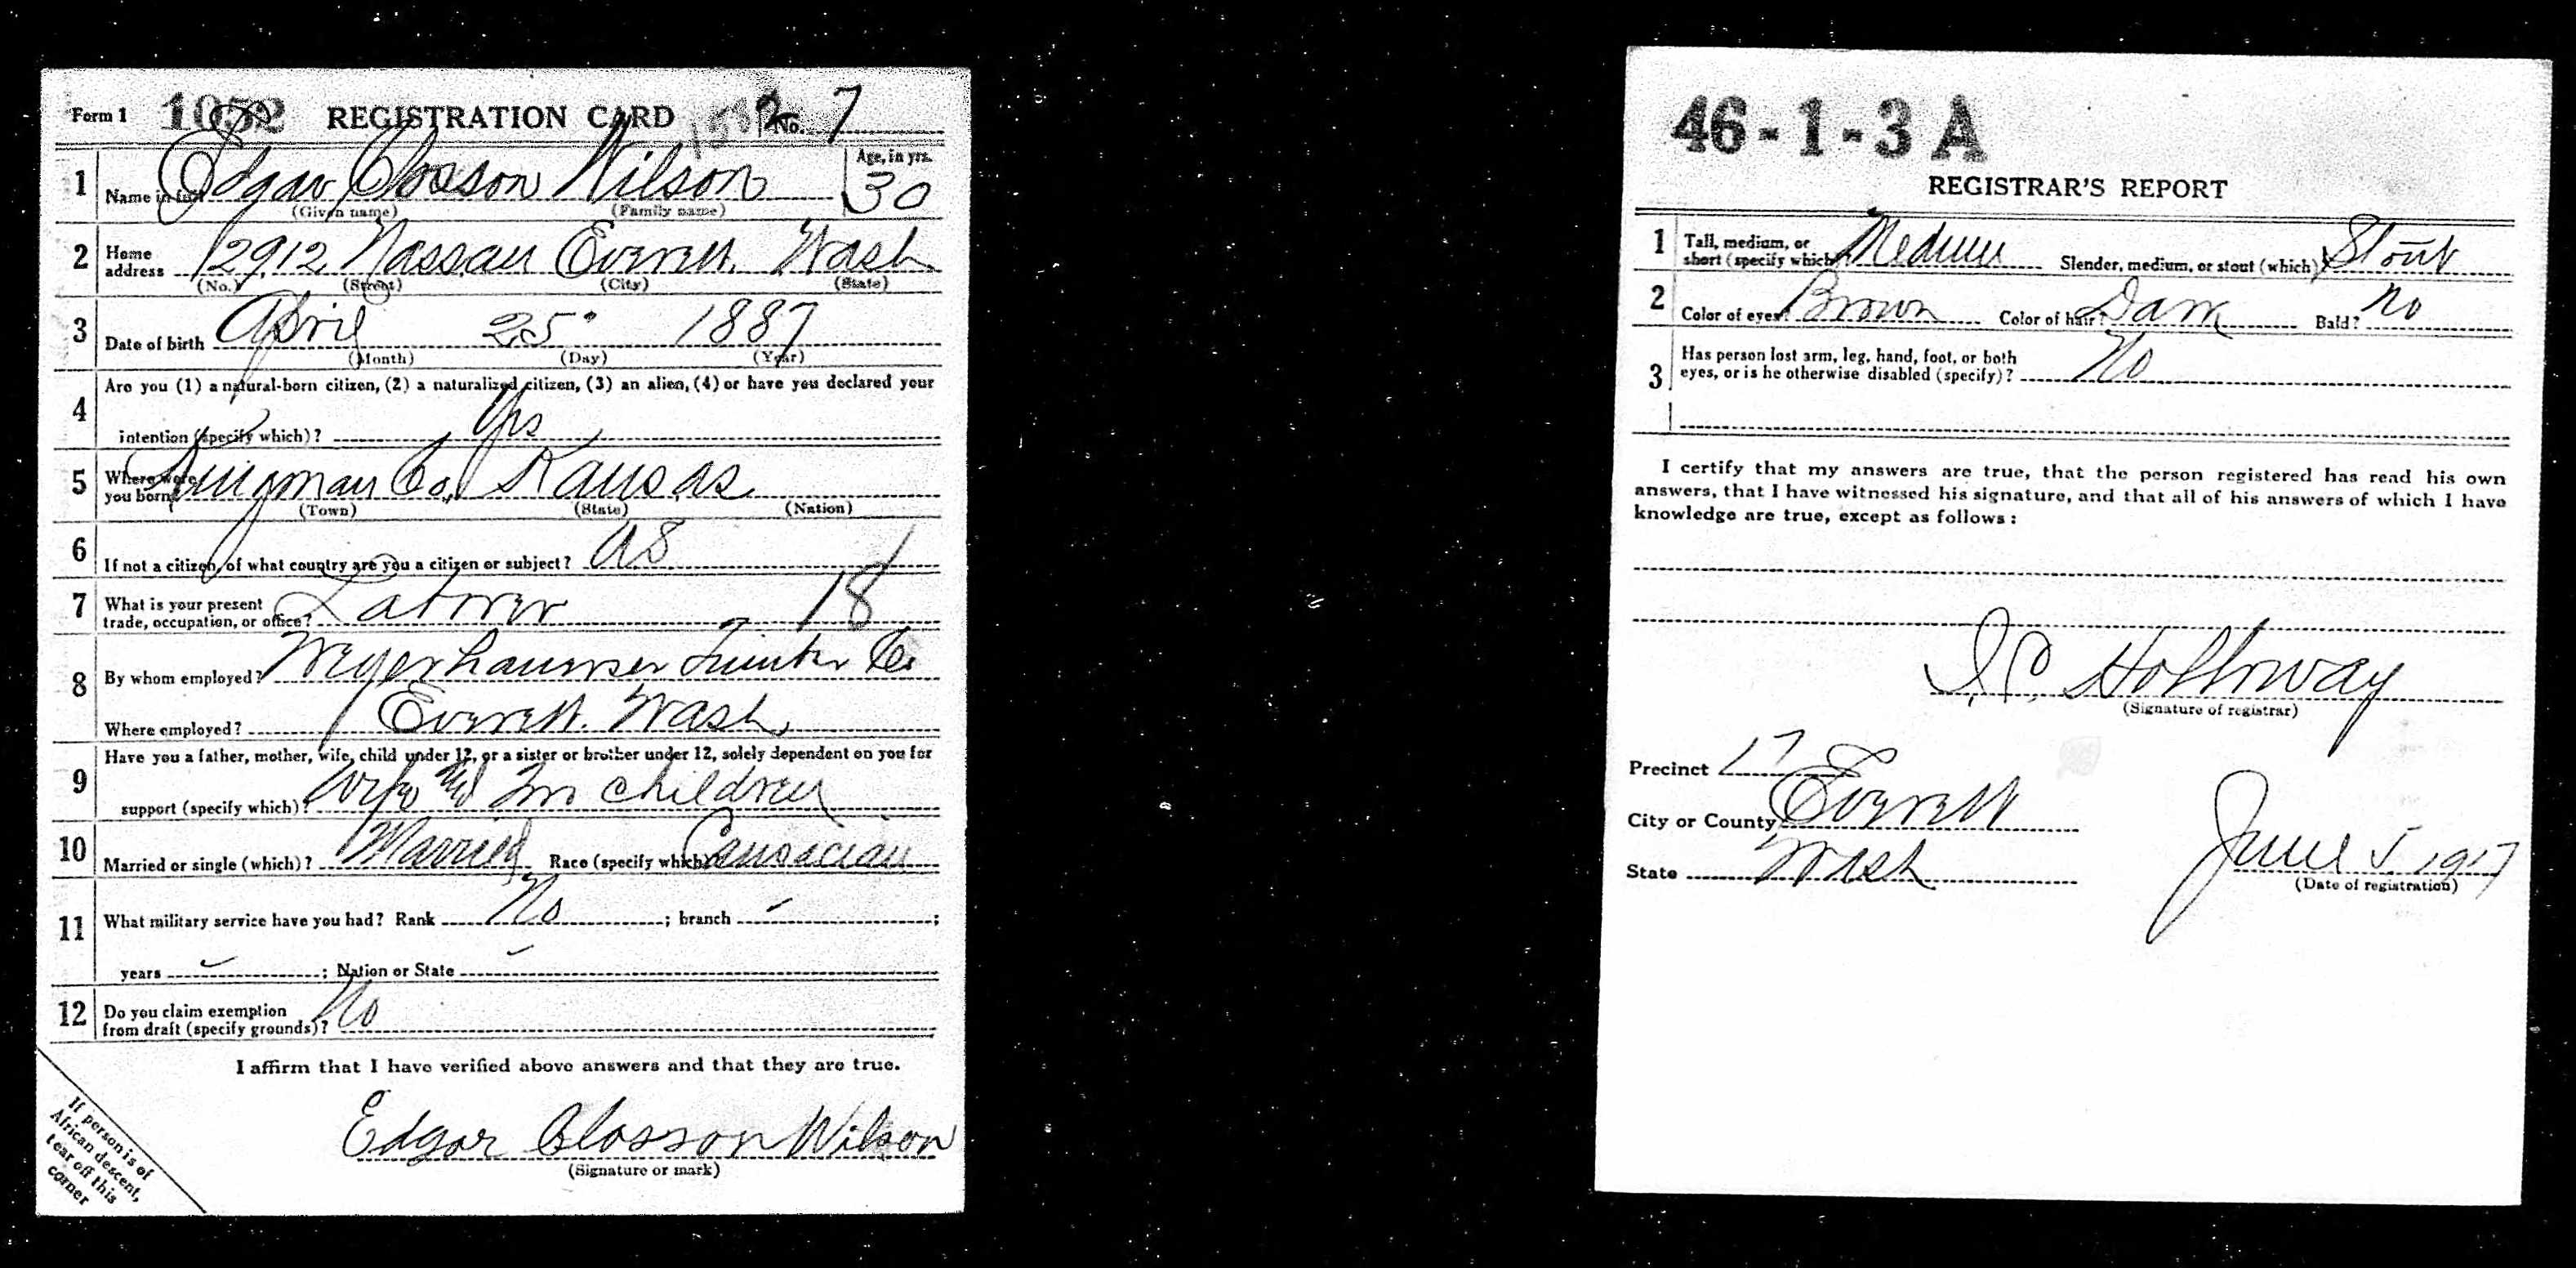 Form 1 1052 REGISTRATION CARD No. 7
1 Name in full Edgar Closson Wilson Age, in yrs. 30
(Given name) (Family name)
2 Home address 2912 Nassau Everett Wash
(No.) (Street) (City) (State)
3 Date of birth April 25 1887
(Month) (Day) (Year)
4 Are you (1) a natural-born citizen, (2) a naturalized citizen, (3) an alien, (4) or have you declared your
intention (specify which)? Yes
5 Where were you born? Kingman Co, Kansas
(Town) (State) (Nation)
6 If not a citizen, of what country are you a citizen or subject?
7 What is your present trade, occupation, or office? Laborer 18
8 By whom employed? Weyerhaumser Timber Co
Where employed? Everett. Wash
9 Have you a father, mother, wife, child under 12, or a sister or brother under 12, solely dependent on you for
support (specify which)? Wife and children
10 Married or single (which)? Married Race (specify which)? Causacian
11 What military service have you had? Rank No ; branch - ;
years - ; Nation or State -
12 Do you claim exemption from draft (specify grounds)? No
I affirm that I have verified above answers and that they are true.
Edgar Closson Wilson
(Signature or mark)
If person is of
African descent,
tear off this
corner
46-1-3 A
REGISTRAR'S REPORT
1 Tall, medium, or short (specify which)? Medium Slender, medium, or stout (which)? Stout
2 Color of eyes? Brown Color of hair? Dark Bald? No
3 Has person lost arm, leg, hand, foot, or both
eyes, or is he otherwise disabled (specify)? No
I certify that my answers are true, that the person registered has read his own
answers, that I have witnessed his signature, and that all of his answers of which I have
knowledge are true, except as follows:
I. C. Holloway
(Signature of registrar)
Precinct 17
City or County Everett
State Wash
June 5 1917
(Date of registration)